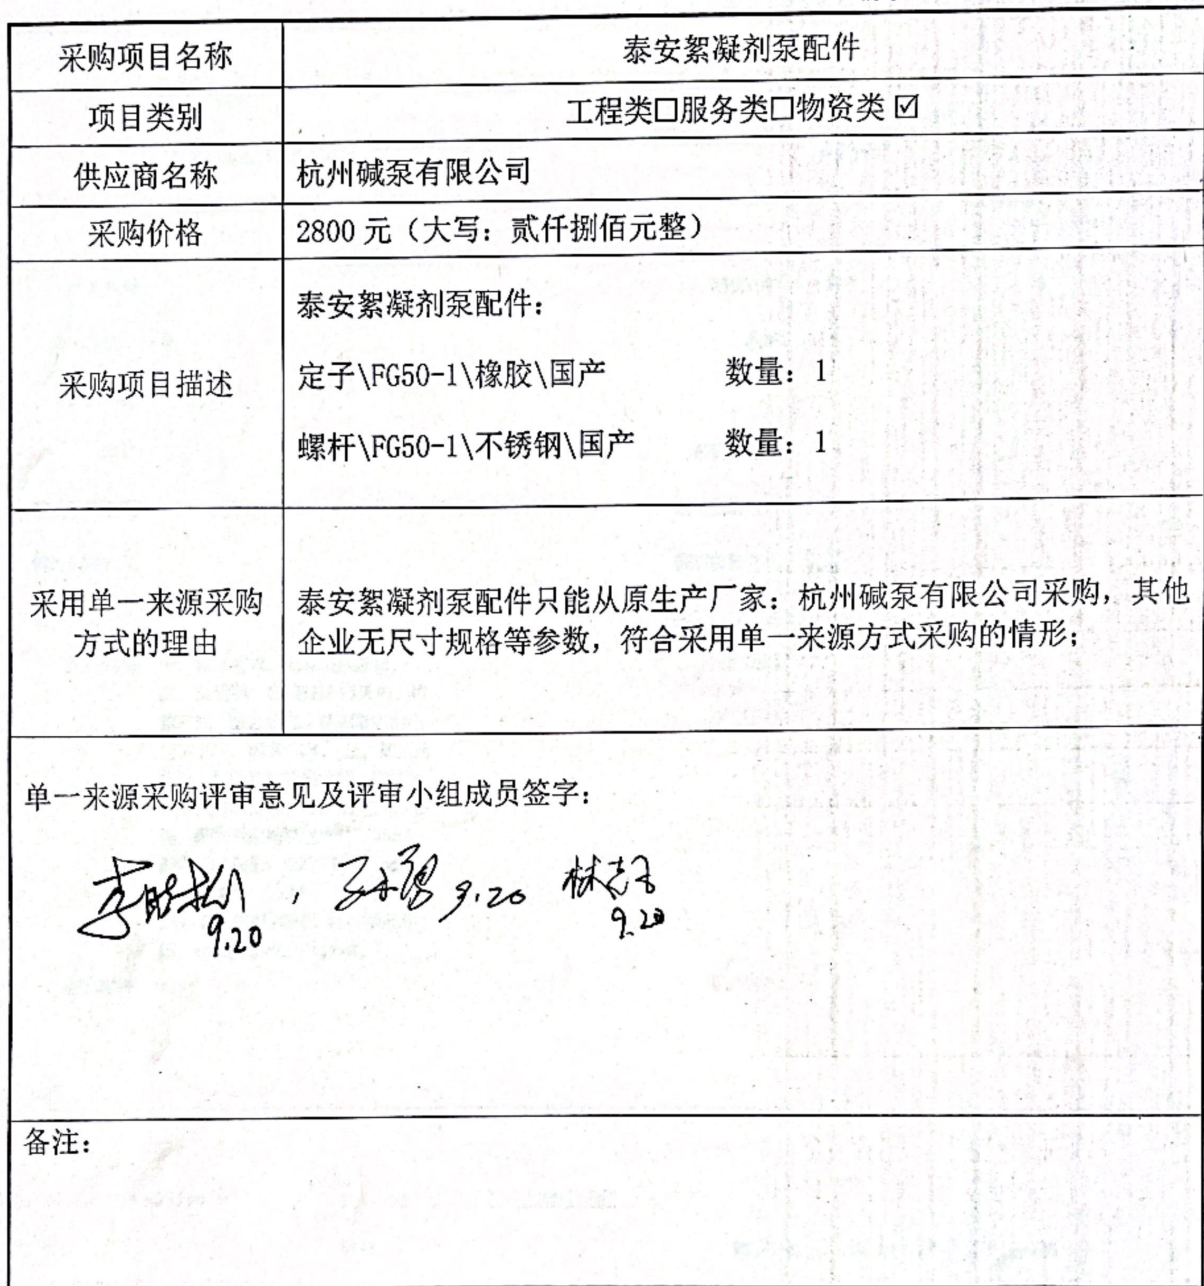 采购项目名称
泰安絮凝剂泵配件
项目类别
工程类☐服务类☐物资类☑
供应商名称
杭州碱泵有限公司
采购价格
2800元（大写：贰仟捌佰元整）
采购项目描述
泰安絮凝剂泵配件：
定子\FG50-1\橡胶\国产 数量：1
螺杆\FG50-1\不锈钢\国产 数量：1
采用单一来源采购
方式的理由
泰安絮凝剂泵配件只能从原生产厂家：杭州碱泵有限公司采购，其他
企业无尺寸规格等参数，符合采用单一来源方式采购的情形；
单一来源采购评审意见及评审小组成员签字：
9.20
9.20
9.20
备注：